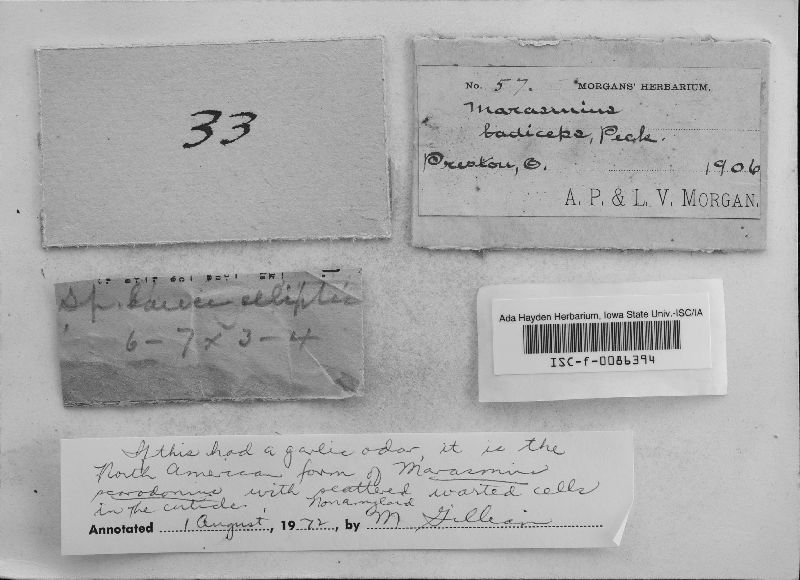 33
No. 57. MORGANS' HERBARIUM.
Marasmius
badiceps, Peck.
Preston, O. 1906
A. P. & L. V. MORGAN.
Sp. elliptic
6-7 x 3-4
Ada Hayden Herbarium, Iowa State Univ.-ISC/IA
ISC-f-0086394
If this had a garlic odor, it is the
North American form of Marasmius
scorodonius with scattered warted cells
in the cuticle. Nonamyloid
Annotated 1 August, 1972, by M Gilliam